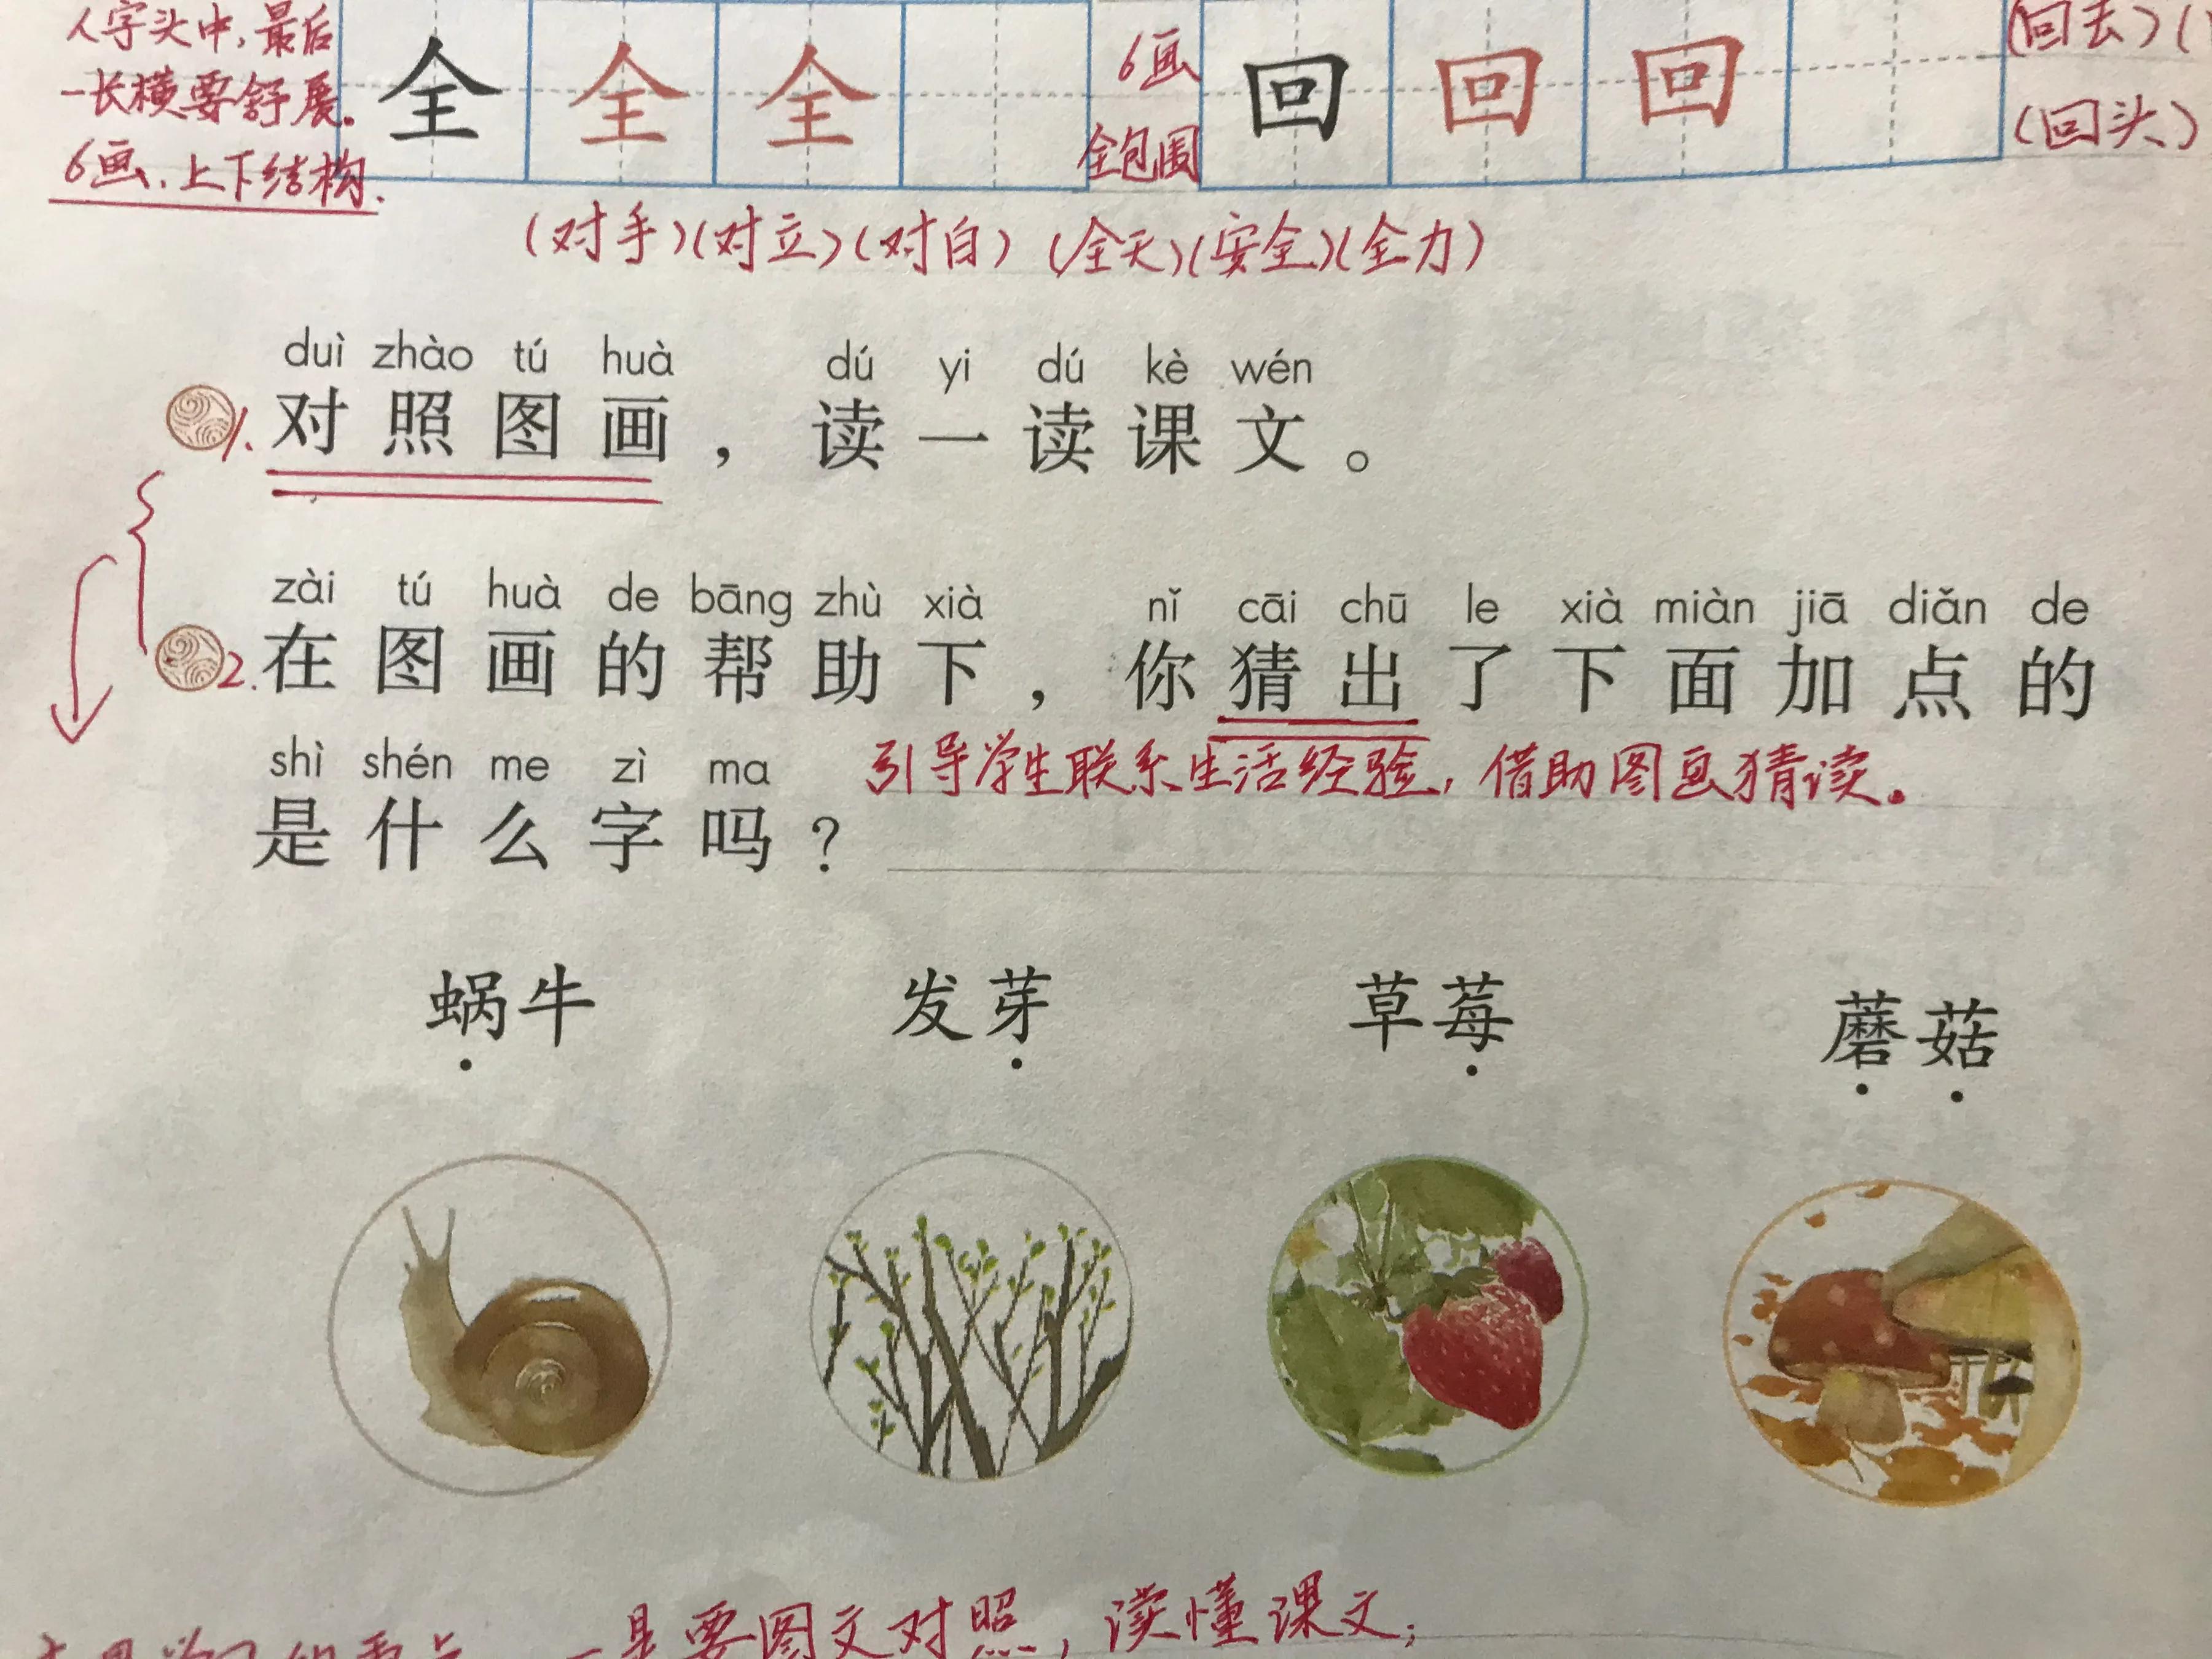 人字头中,最后
一长横要舒展。
6画、上下结构.
全 全 全
6画
全包围
回 回 回
(回去)(
(回头)
(对手)(对立)(对白) (全天)(安全)(全力)
duì zhào tú huà dú yi dú kè wén
1. 对照图画，读一读课文。
zài tú huà de bāng zhù xià nǐ cāi chū le xià miàn jiā diǎn de
2. 在图画的帮助下，你猜出了下面加点的
shì shén me zì ma
是什么字吗？
引导学生联系生活经验,借助图画猜读。
蜗牛 发芽 草莓 蘑菇
一是要图文对照,读懂课文;